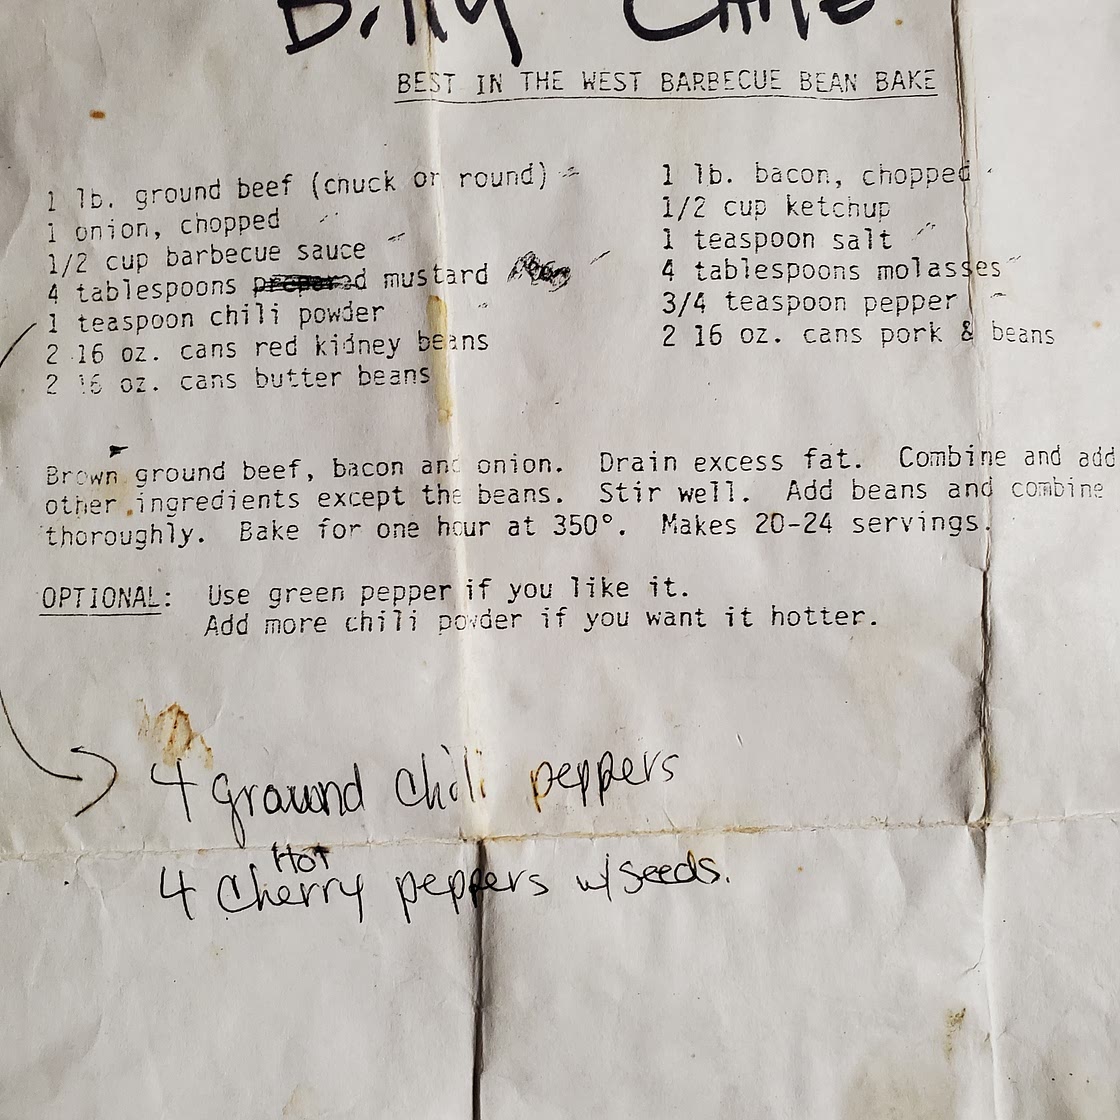 Billy Chile
BEST IN THE WEST BARBECUE BEAN BAKE
1 lb. ground beef (chuck or round)
1 onion, chopped
1/2 cup barbecue sauce
4 tablespoons prepared mustard
1 teaspoon chili powder
2 16 oz. cans red kidney beans
2 16 oz. cans butter beans
1 lb. bacon, chopped
1/2 cup ketchup
1 teaspoon salt
4 tablespoons molasses
3/4 teaspoon pepper
2 16 oz. cans pork & beans
Brown ground beef, bacon and onion. Drain excess fat. Combine and add
other ingredients except the beans. Stir well. Add beans and combine
thoroughly. Bake for one hour at 350°. Makes 20-24 servings.
OPTIONAL: Use green pepper if you like it.
Add more chili powder if you want it hotter.
4 ground chili peppers
Hot
4 Cherry peppers w/seeds.